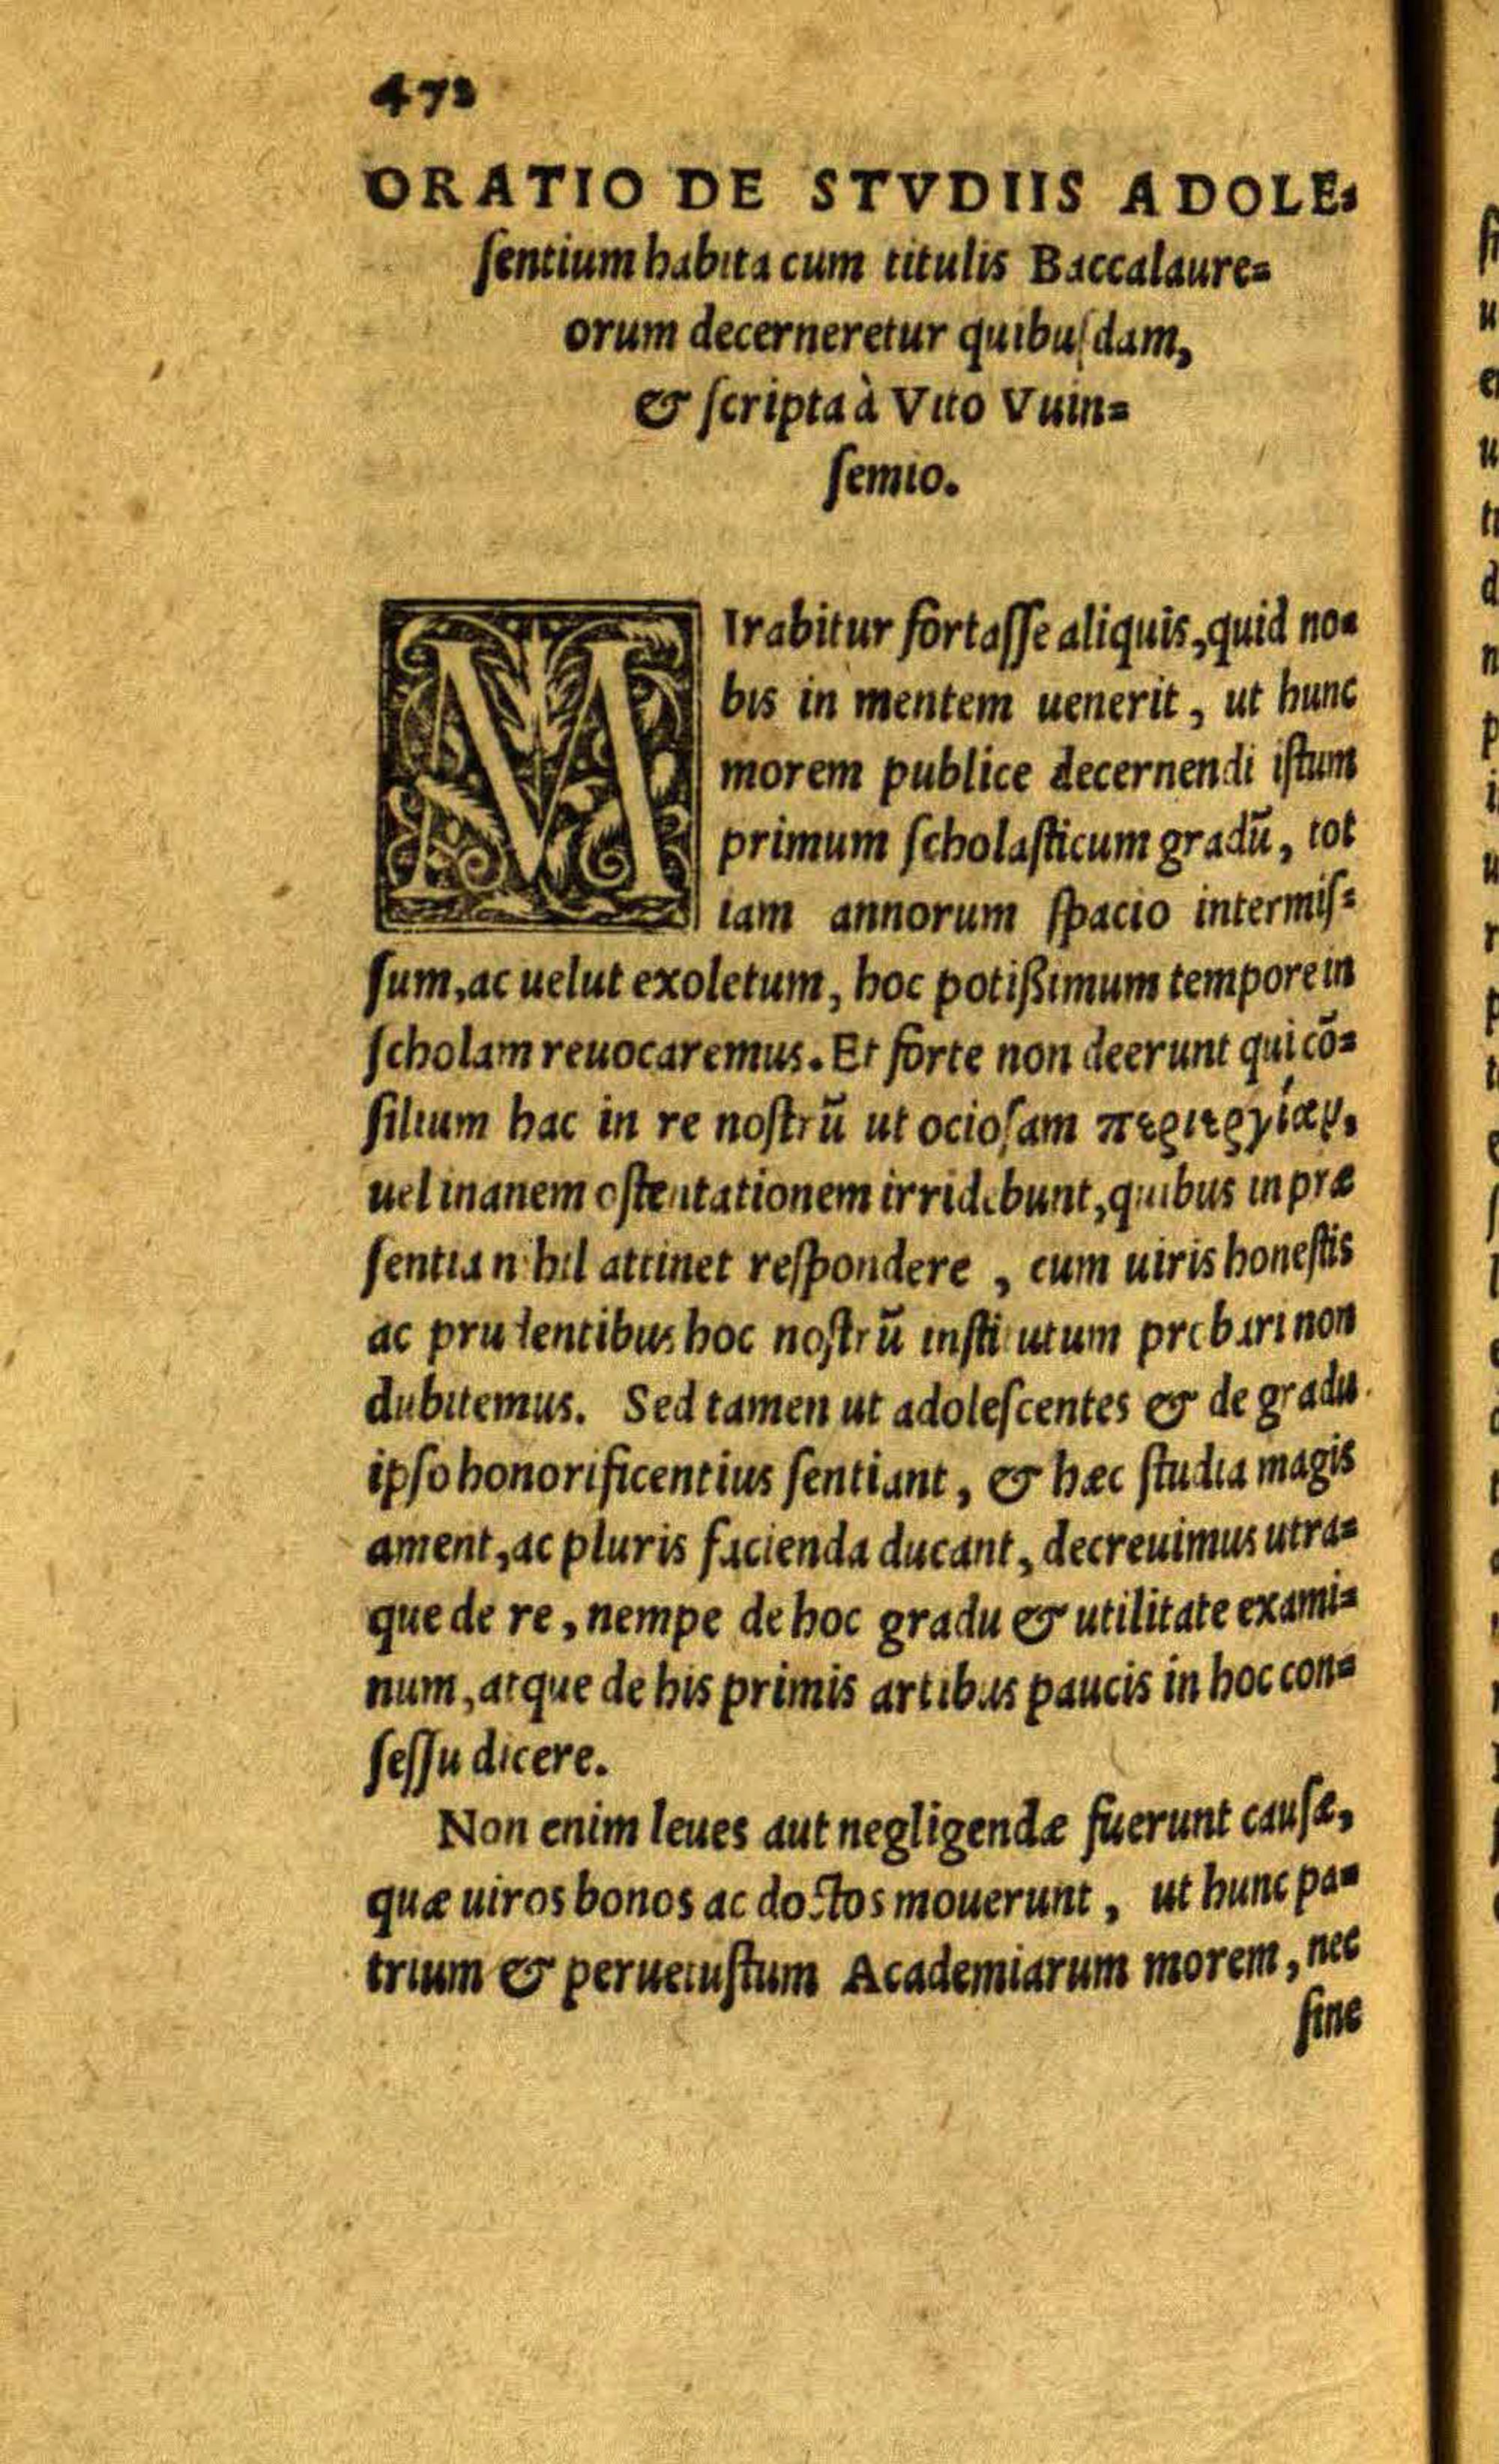 472
ORATIO DE STVDIIS ADOLE=
ſentium habita cum titulis Baccalaure=
orum decerneretur quibuſdam,
& ſcripta à Vito Vuin=
ſemio.
MIrabitur fortaſſe aliquis, quid no=
bis in mentem uenerit, ut hunc
morem publice decernendi iſtum
primum ſcholaſticum gradũ, tot
iam annorum ſpacio intermiſ=
ſum, ac uelut exoletum, hoc potißimum tempore in
ſcholam reuocaremus. Et forte non deerunt qui cõ=
ſilium hac in re noſtrũ ut ocioſam περιεργίαν,
uel inanem oſtentationem irridebunt, quibus in præ
ſentia nihil attinet reſpondere, cum uiris honeſtis
ac prudentibus hoc noſtrũ inſtitutum probari non
dubitemus. Sed tamen ut adoleſcentes & de gradu
ipſo honorificentius ſentiant, & hæc ſtudia magis
ament, ac pluris facienda ducant, decreuimus utra=
que de re, nempe de hoc gradu & utilitate exami=
num, atque de his primis artibus paucis in hoc con=
ſeſſu dicere.
Non enim leues aut negligendæ fuerunt cauſæ,
quæ uiros bonos ac doctos mouerunt, ut hunc pa=
trium & peruetuſtum Academiarum morem, nec
ſine